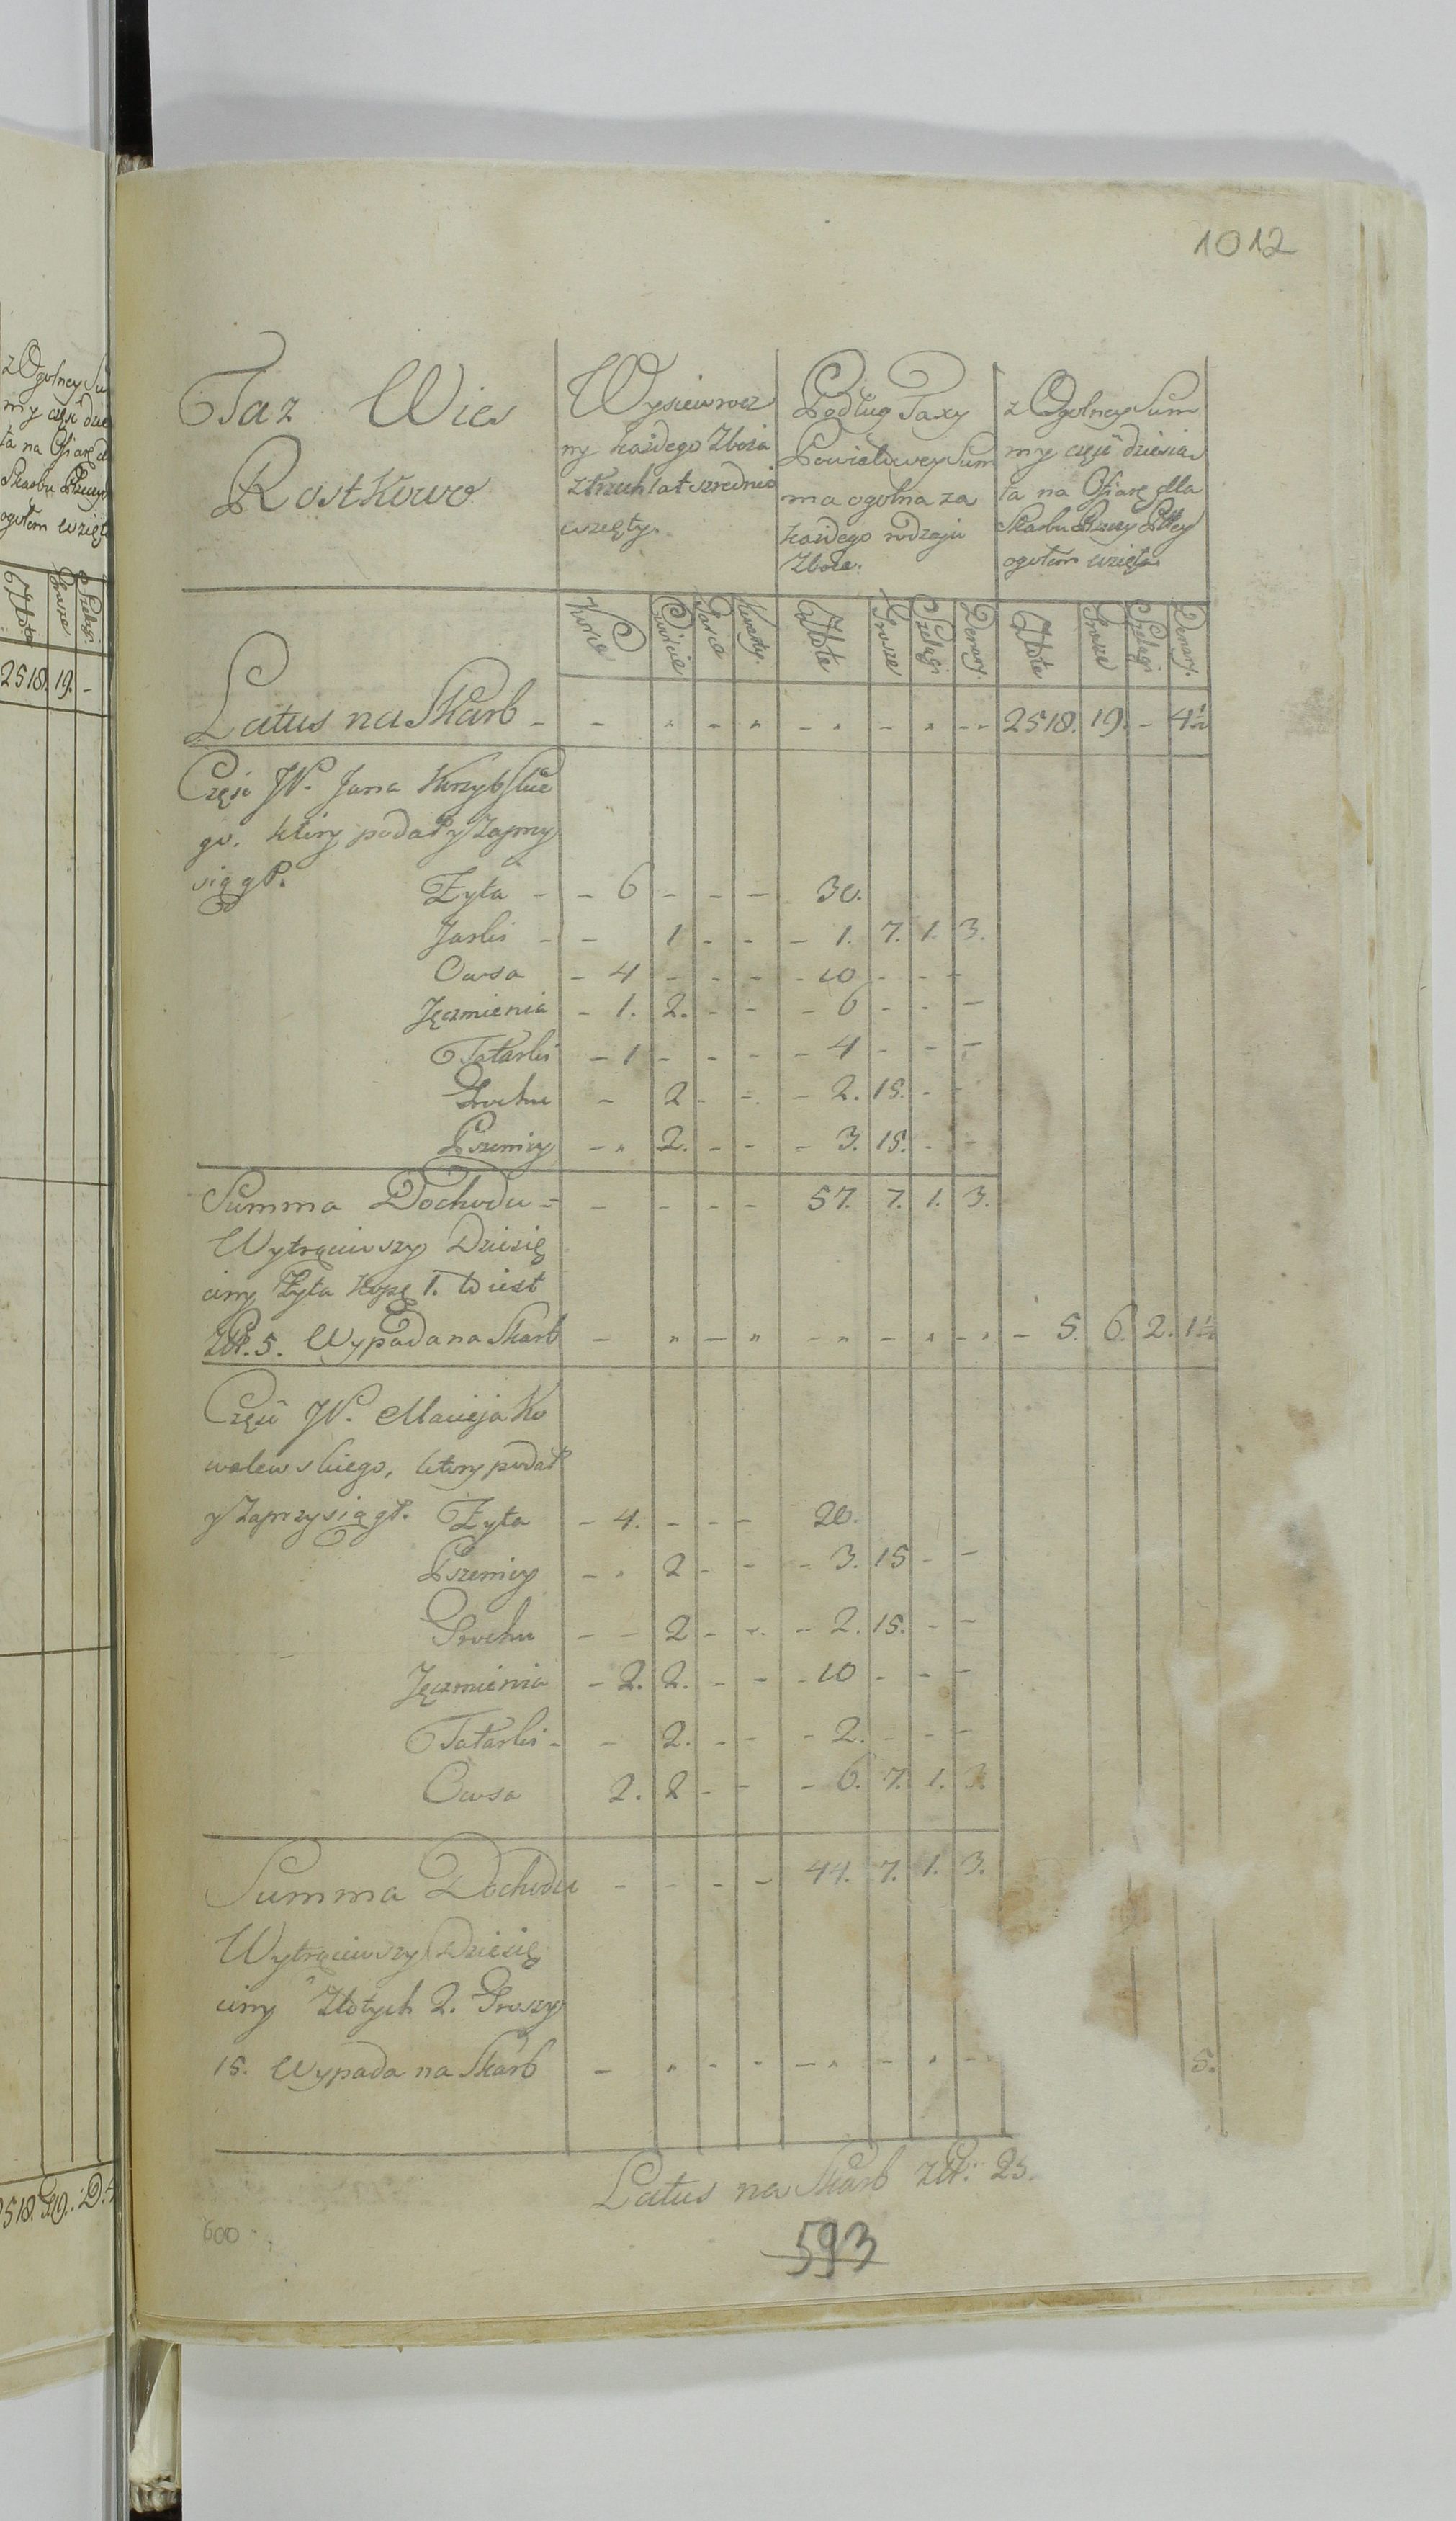 z Ogolney Su
my częśc dzie
ta na Ofiarę d
Skarbu Rzeczy
ogołem wzięt
Złote Grosze Szelągi
2518. 19. -
2518. 19.
1012
Taz Wies
Rostkowo
Wysiew rocz
ny każdego Zboża
z trzech lat szrednio
wzięty.
Podług Taxy
Powiatowey Sum
ma ogolna za
każdego rodzaju
Zboże.
z Ogolney Sum
my częśc dziesią
ta na Ofiarę dla
Skarbu Rzeczy Pltey
ogołem wzięta
Korce Cwierci Garce Kwarty. Złote Grosze Szelągi Denary. Złote Grosze Szelągi Denary.
Latus na Skarb - - " - " - " - " - - 2518. 19. - 4½
Częśc W. Jana Krzyb
go. ktory podał y zaprzy
siągł. Żyta - - 6 - - - 30.
Jarki - - 1 - - - 1. 7. 1. 3.
Owsa - 4 - - - - 10 - - -
Jęczmienia - 1. 2. - - - 6 - - -
Tatarki - 1 - - - - 4 - - -
Grochu - 2 - - - 2. 15. - -
Pszenicy - " 2. - - - 3. 15. - -
Summa Dochodu = - - - - 57. 7. 1. 3.
Wytrąciwszy Dziesię
ciny Żyta kopę 1. to iest
Złt. 5. Wypada na Skarb - " - " - " - " - " - 5. 6. 2. 1½
Częśc W. Macieja Ko
walewskiego, ktory podał
y zaprzysiągł. Żyta - 4. - - - 20.
Pszenicy - " 2 - - - 3. 15 - -
Grochu - - 2 - - - 2. 15. - -
Jęczmienia - 2. 2. - - - 10 - - -
Tatarki - - 2. - - - 2. - - -
Owsa 2. 2 - - - 6. 7. 1. 3.
Summa Dochodu - - - - 44. 7. 1. 3.
Wytrąciwszy Dziesię
ciny Złotych 2. Groszy
15. Wypada na Skarb - " - - - " - " - 5.
Latus na Skarb złt: 25.
600
593